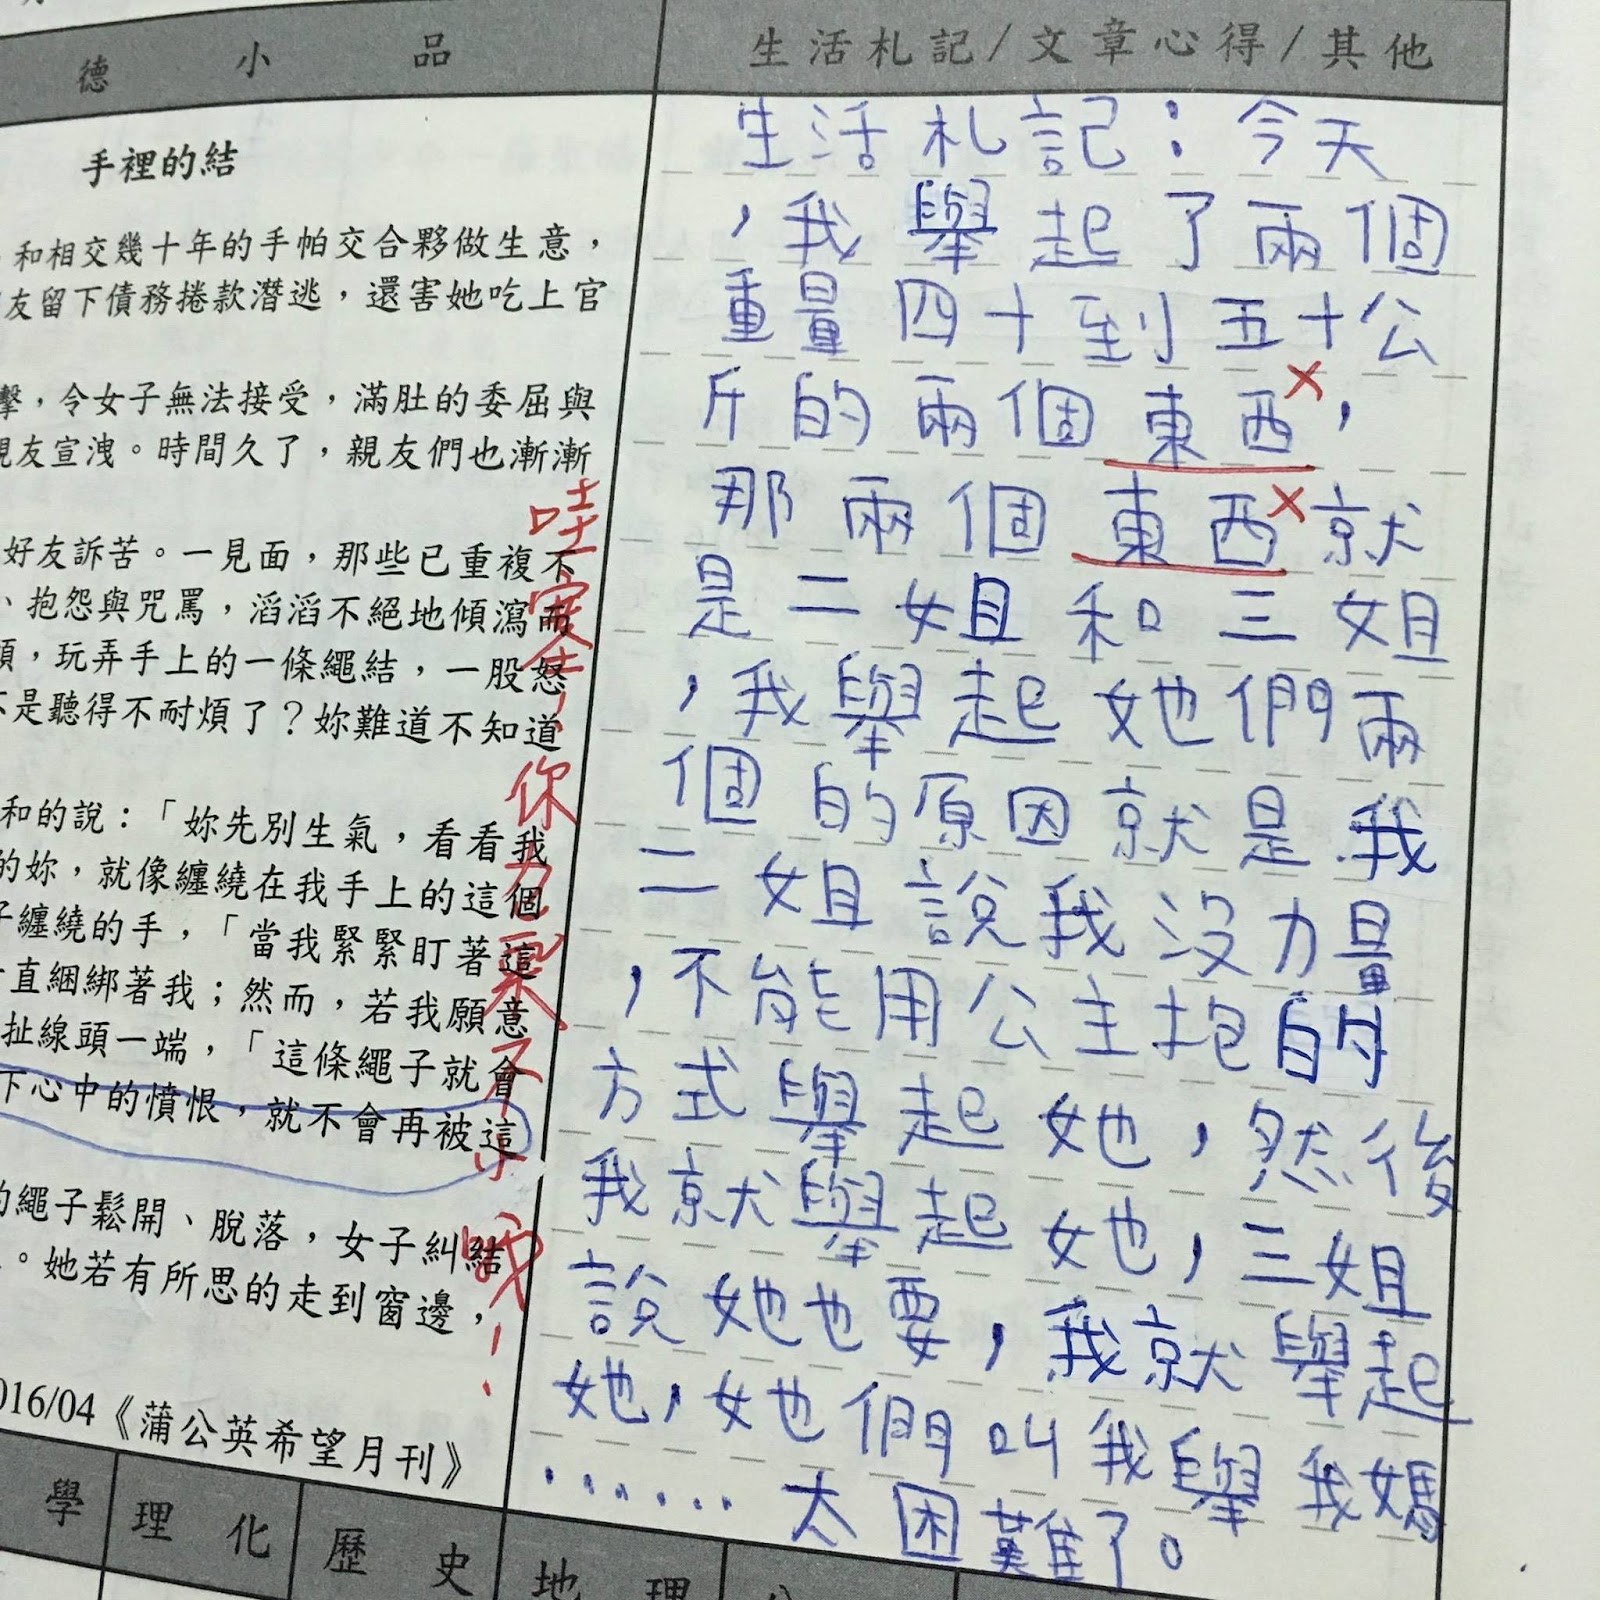 德小品
手裡的結
，和相交幾十年的手帕交合夥做生意，
友留下債務捲款潛逃，還害她吃上官
擊，令女子無法接受，滿肚的委屈與
親友宣洩。時間久了，親友們也漸漸
好友訴苦。一見面，那些已重複不
、抱怨與咒罵，滔滔不絕地傾瀉而
頭，玩弄手上的一條繩結，一股怒
不是聽得不耐煩了？妳難道不知道
和的說：「妳先別生氣，看看我
的妳，就像纏繞在我手上的這個
子纏繞的手，「當我緊緊盯著這
直綑綁著我；然而，若我願意
扯線頭一端，「這條繩子就會
下心中的憤恨，就不會再被這
的繩子鬆開、脫落，女子糾結
。她若有所思的走到窗邊，
016/04《蒲公英希望月刊》
學
理化
歷史
地理
生活札記/文章心得/其他
生活札記：今天
，我舉起了兩個
重量四十到五十公
斤的兩個東西，
那兩個東西就
是二姐和三姐
，我舉起她們兩
個的原因就是我
二姐說我沒力量
，不能用公主抱的
方式舉起她，然後
我就舉起她，三姐
說她也要，我就舉起
她，她們叫我舉我媽
……太困難了。